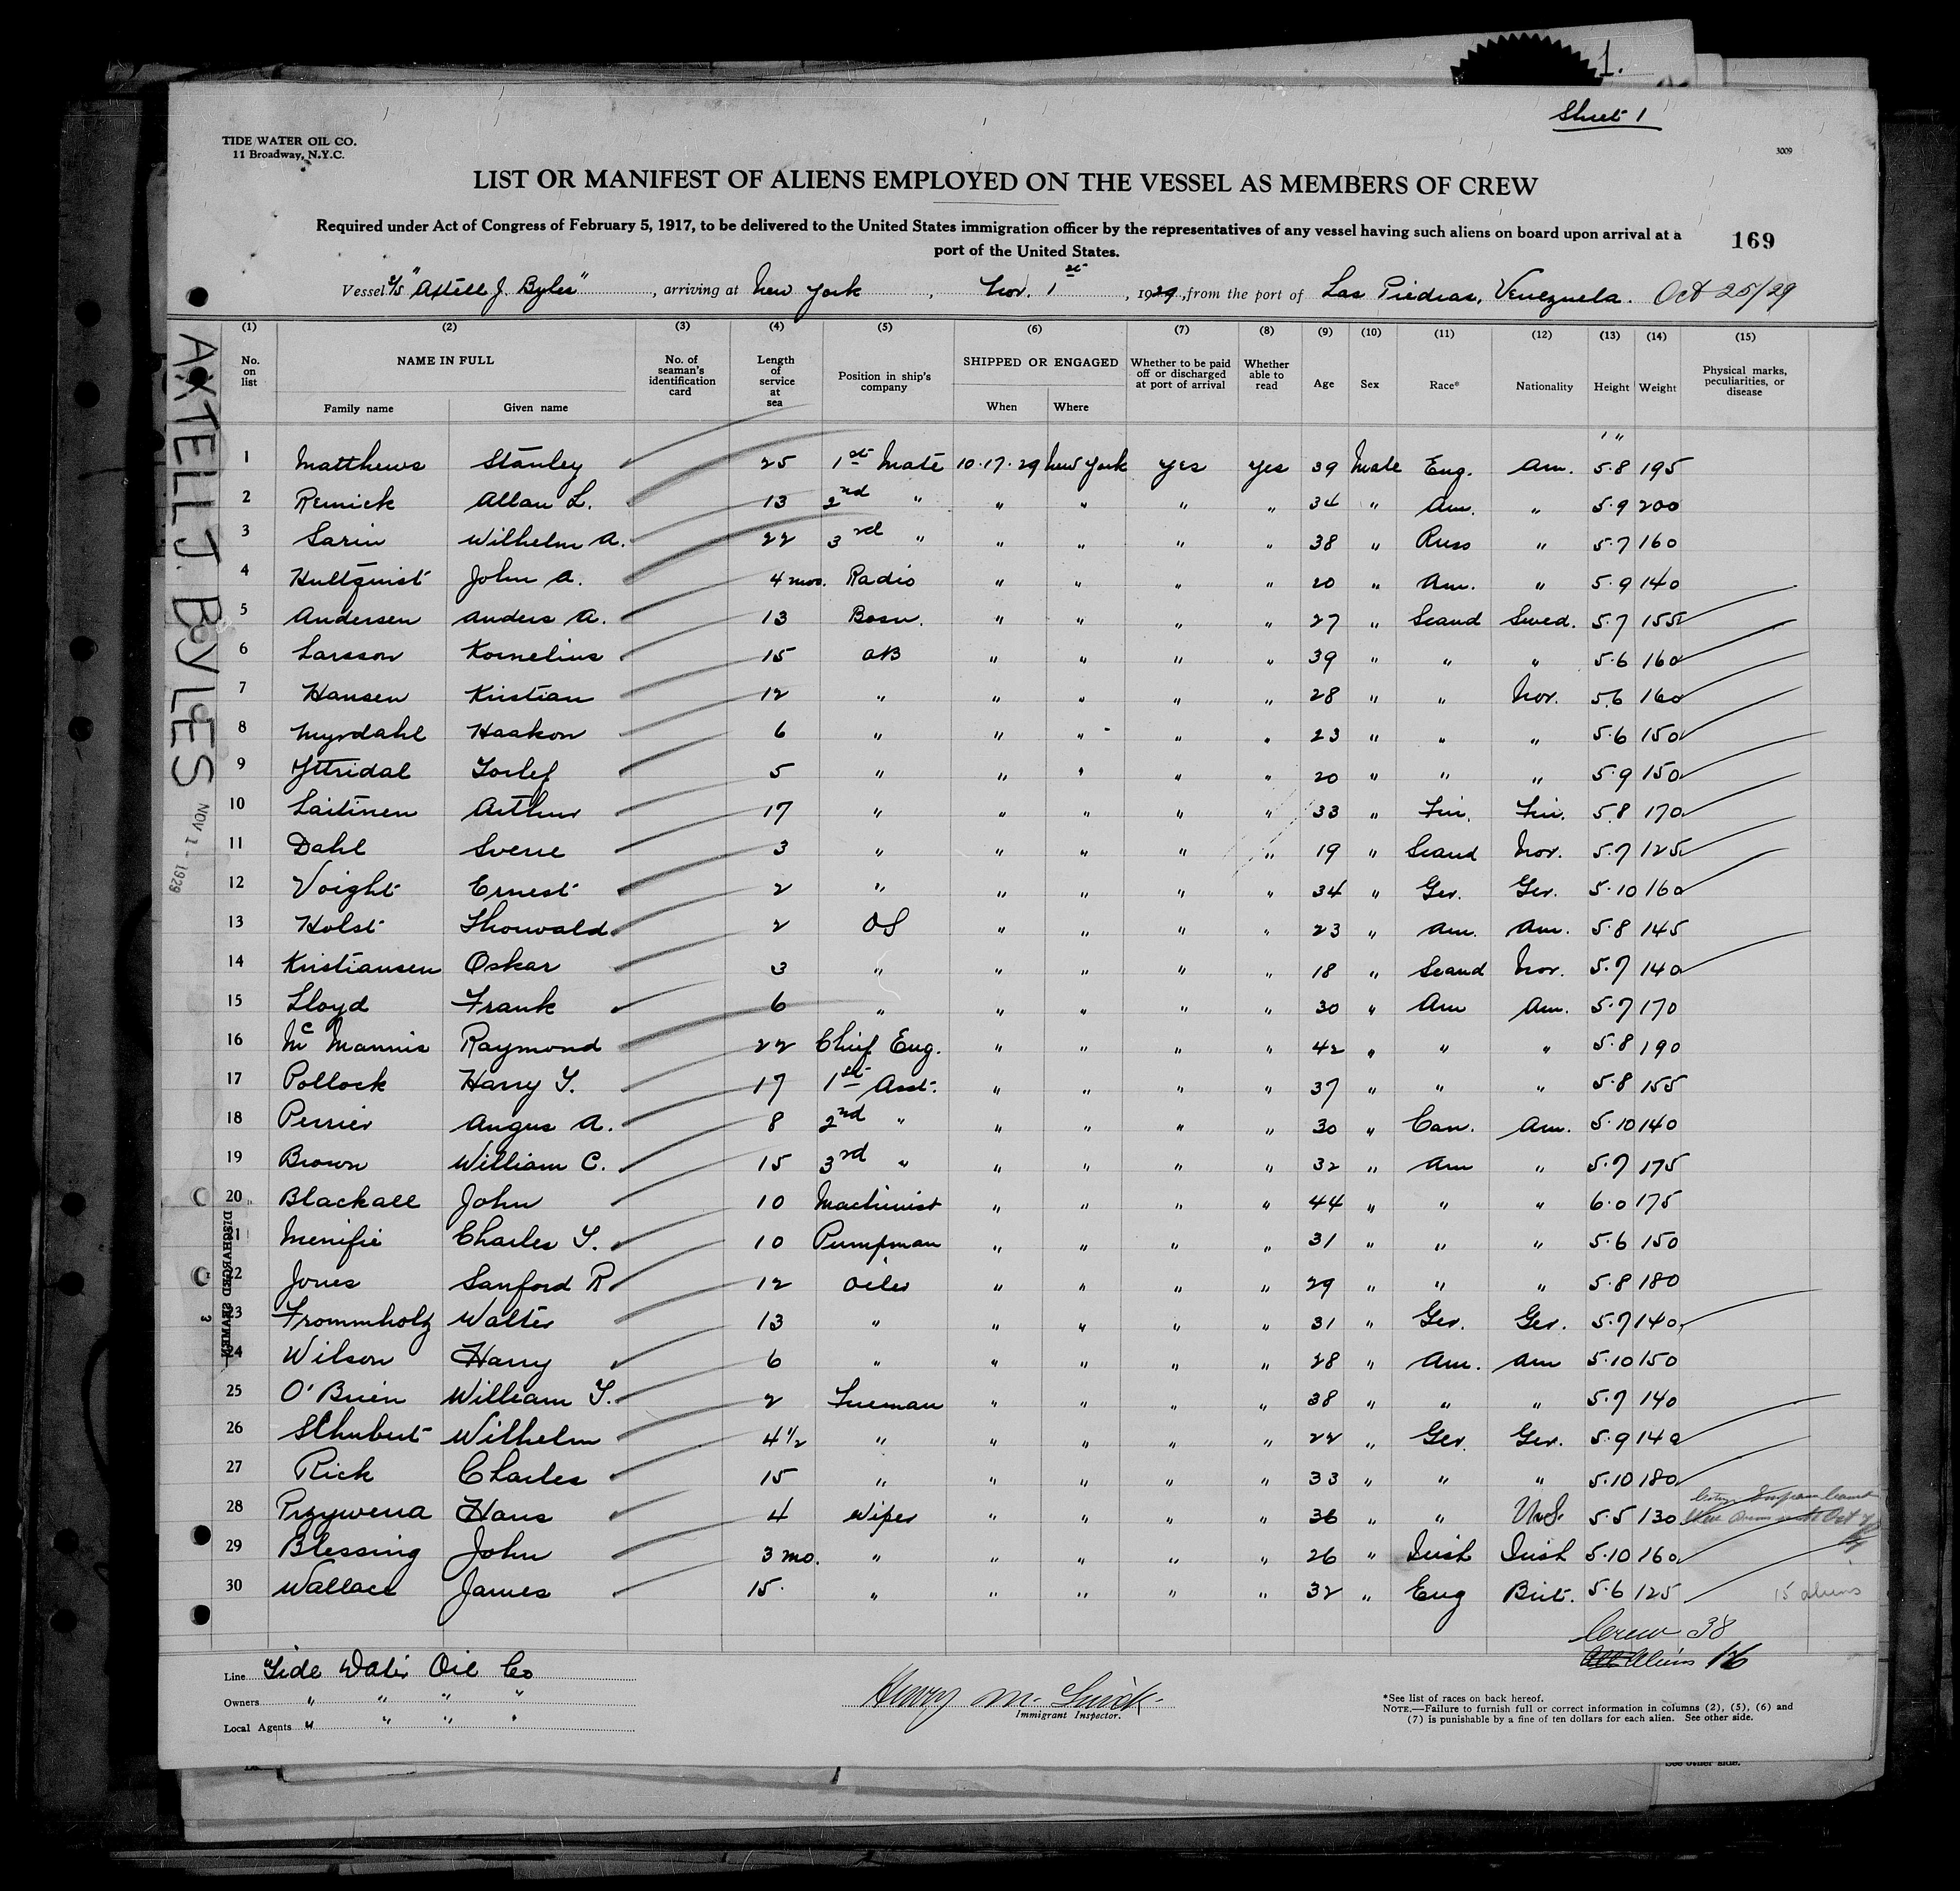 1.
Sheet 1
TIDE WATER OIL CO.
11 Broadway, N.Y.C.
3009
LIST OR MANIFEST OF ALIENS EMPLOYED ON THE VESSEL AS MEMBERS OF CREW
Required under Act of Congress of February 5, 1917, to be delivered to the United States immigration officer by the representatives of any vessel having such aliens on board upon arrival at a
port of the United States.
169
Vessel S/S "Axtell J. Byles", arriving at New York, Nov. 1st, 1929, from the port of Las Piedras, Venezuela. Oct 25/29
AXTELL J. ByLES
NOV 1 - 1929
(1) (2) (3) (4) (5) (6) (7) (8) (9) (10) (11) (12) (13) (14) (15)
No. on list NAME IN FULL No. of seaman's identification card Length of service at sea Position in ship's company SHIPPED OR ENGAGED Whether to be paid off or discharged at port of arrival Whether able to read Age Sex Race* Nationality Height Weight Physical marks, peculiarities, or disease
Family name Given name When Where
' "
1 Matthews Stanley 25 1st Mate 10-17-29 New York yes yes 39 Male Eng. Am. 5-8 195
2 Remick Allan L. 13 2nd " " " " " 34 " Am. " 5-9 200
3 Sarin Wilhelm A. 22 3rd " " " " " 38 " Russ " 5-7 160
4 Hultquist John A. 4 mos. Radio " " " " 20 " Am. " 5-9 140
5 Andersen Anders A. 13 Bosn. " " " " 27 " Scand Swed. 5-7 155
6 Larsson Kornelius 15 AB " " " " 39 " " " 5-6 160
7 Hansen Kristian 12 " " " " " 28 " " Nor. 5-6 160
8 Myrdahl Haakon 6 " " " " " 23 " " " 5-6 150
9 Yttridal Torlef 5 " " " " " 20 " " " 5-9 150
10 Laitinen Arthur 17 " " " " " 33 " Fin. Fin. 5-8 170
11 Dahl Sverre 3 " " " " " 19 " Scand Nor. 5-7 125
12 Voight Ernest 2 " " " " " 34 " Ger. Ger. 5-10 160
13 Holst Thorwald 2 OS " " " " 23 " Am. Am. 5-8 145
14 Kristiansen Oskar 3 " " " " " 18 " Scand Nor. 5-7 140
15 Lloyd Frank 6 " " " " " 30 " Am Am. 5-7 170
16 McMannis Raymond 22 Chief Eng. " " " " 42 " " " 5-8 190
17 Pollock Harry T. 17 1st Asst. " " " " 37 " " " 5-8 155
18 Perrier Angus A. 8 2nd " " " " " 30 " Can. Am. 5-10 140
19 Brown William C. 15 3rd " " " " " 32 " Am " 5-7 175
20 Blackall John 10 Machinist " " " " 44 " " " 6-0 175
21 Menifie Charles T. 10 Pumpman " " " " 31 " " " 5-6 150
22 Jones Sanford R 12 Oiler " " " " 29 " " " 5-8 180
23 Frommholz Walter 13 " " " " " 31 " Ger. Ger. 5-7 140
24 Wilson Harry 6 " " " " " 28 " Am. Am 5-10 150
25 O'Brien William T. 2 Fireman " " " " 38 " " " 5-7 140
26 Schubert Wilhelm 4½ " " " " " 22 " Ger. Ger. 5-9 140
27 Rick Charles 15 " " " " " 33 " " " 5-10 180
28 Przywerra Hans 4 Wiper " " " " 36 " " U.S. 5-5 130
29 Blessing John 3 mo. " " " " " 26 " Irish Irish 5-10 160
30 Wallace James 15. " " " " " 32 " Eng Brit. 5-6 125 15 aliens
DISCHARGED SEAMEN
3
Crew 38
Aliens 16
Line Tide Water Oil Co
Owners " " " "
Local Agents " " " "
Immigrant Inspector.
*See list of races on back hereof.
NOTE.—Failure to furnish full or correct information in columns (2), (5), (6) and
(7) is punishable by a fine of ten dollars for each alien. See other side.
See other side.